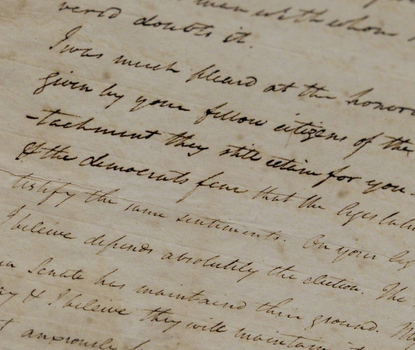 men with whom
doubts it.
I was much pleased at the honor
given by your fellow citizens of the
-tachment they still retain for you
& the democrats fear that the legislatu
testify the same sentiments. On your leg
I believe depends absolutely the election. The
Senate has maintained their ground. Th
& I believe they will maintain it
& anxiously